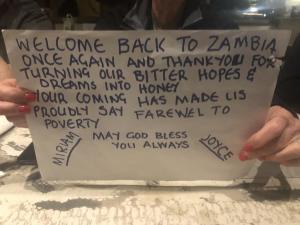 WELCOME BACK TO ZAMBIA
ONCE AGAIN AND THANKYOU FOR
TURNING OUR BITTER HOPES &
DREAMS INTO HONEY
YOUR COMING HAS MADE US
PROUDLY SAY FAREWEL TO
POVERTY
MAY GOD BLESS
YOU ALWAYS
MIRIAM
JOYCE